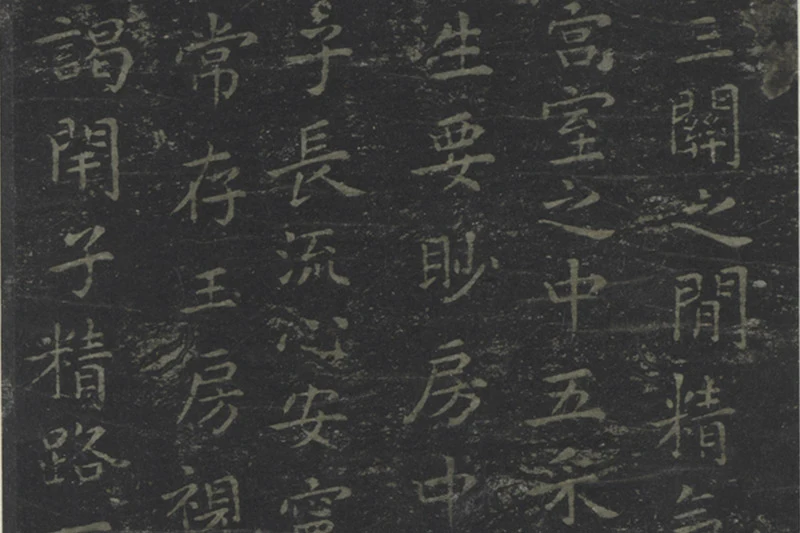 三關之間精氣
宮室之中五采
生要眇房中
子長流心安寧
常存王房視
謁閇子精路